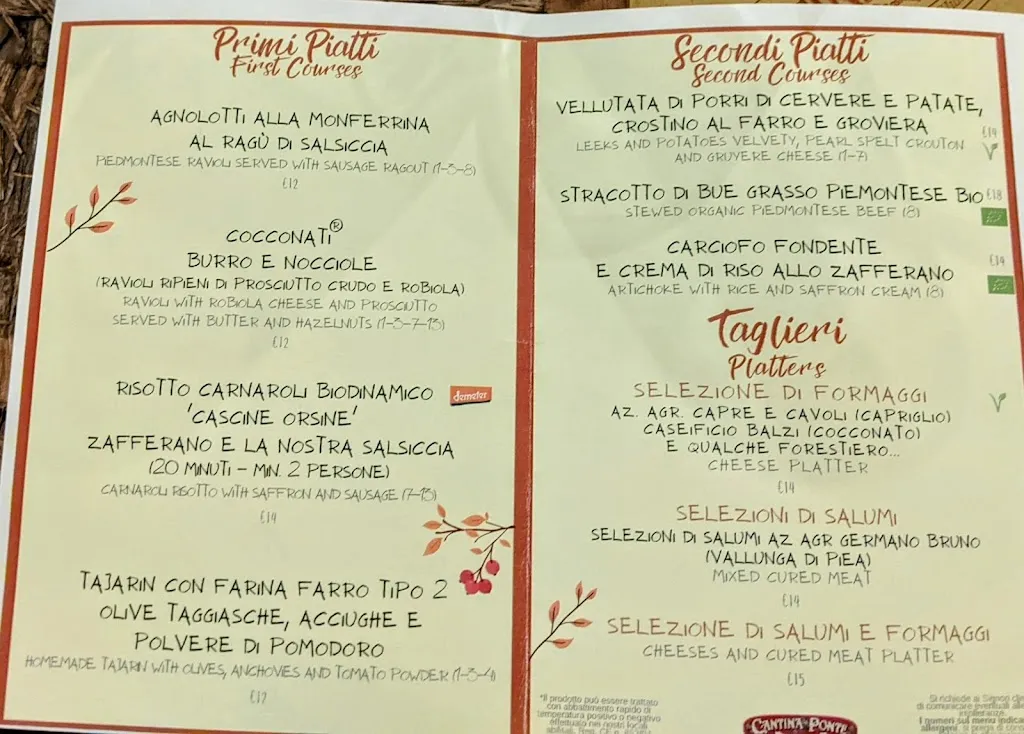 Primi Piatti
First Courses
AGNOLOTTI ALLA MONFERRINA
AL RAGÙ DI SALSICCIA
PIEDMONTESE RAVIOLI SERVED WITH SAUSAGE RAGOUT (1-3-8)
€12
COCCONATI®
BURRO E NOCCIOLE
(RAVIOLI RIPIENI DI PROSCIUTTO CRUDO E ROBIOLA)
RAVIOLI WITH ROBIOLA CHEESE AND PROSCIUTTO
SERVED WITH BUTTER AND HAZELNUTS (1-3-7-13)
€12
RISOTTO CARNAROLI BIODINAMICO
demeter
'CASCINE ORSINE'
ZAFFERANO E LA NOSTRA SALSICCIA
(20 MINUTI - MIN. 2 PERSONE)
CARNAROLI RISOTTO WITH SAFFRON AND SAUSAGE (7-13)
€14
TAJARIN CON FARINA FARRO TIPO 2
OLIVE TAGGIASCHE, ACCIUGHE E
POLVERE DI POMODORO
HOMEMADE TAJARIN WITH OLIVES, ANCHOVIES AND TOMATO POWDER (1-3-4)
€12
Secondi Piatti
Second Courses
VELLUTATA DI PORRI DI CERVERE E PATATE,
CROSTINO AL FARRO E GROVIERA
€14
LEEKS AND POTATOES VELVETY, PEARL SPELT CROUTON
AND GRUYERE CHEESE (1-7)
STRACOTTO DI BUE GRASSO PIEMONTESE BIO €18
STEWED ORGANIC PIEDMONTESE BEEF (8)
CARCIOFO FONDENTE
€14
E CREMA DI RISO ALLO ZAFFERANO
ARTICHOKE WITH RICE AND SAFFRON CREAM (8)
Taglieri
Platters
SELEZIONE DI FORMAGGI
AZ. AGR. CAPRE E CAVOLI (CAPRIGLIO)
CASEIFICIO BALZI (COCCONATO)
E QUALCHE FORESTIERO...
CHEESE PLATTER
€14
SELEZIONI DI SALUMI
SELEZIONI DI SALUMI AZ AGR GERMANO BRUNO
(VALLUNGA DI PIEA)
MIXED CURED MEAT
€14
SELEZIONE DI SALUMI E FORMAGGI
CHEESES AND CURED MEAT PLATTER
€15
*Il prodotto può essere trattato
con abbattimento rapido di
temperatura positivo o negativo
effettuato nei nostri locali
CANTINA PONTE
Si richiede ai Signori
di comunicare eventuali
intolleranze.
I numeri sul menu
allergeni.